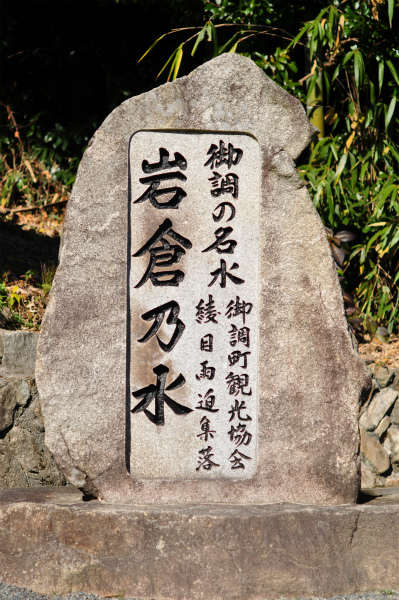 御調の名水
岩倉乃水
御調町観光協会
綾目雨迫集落